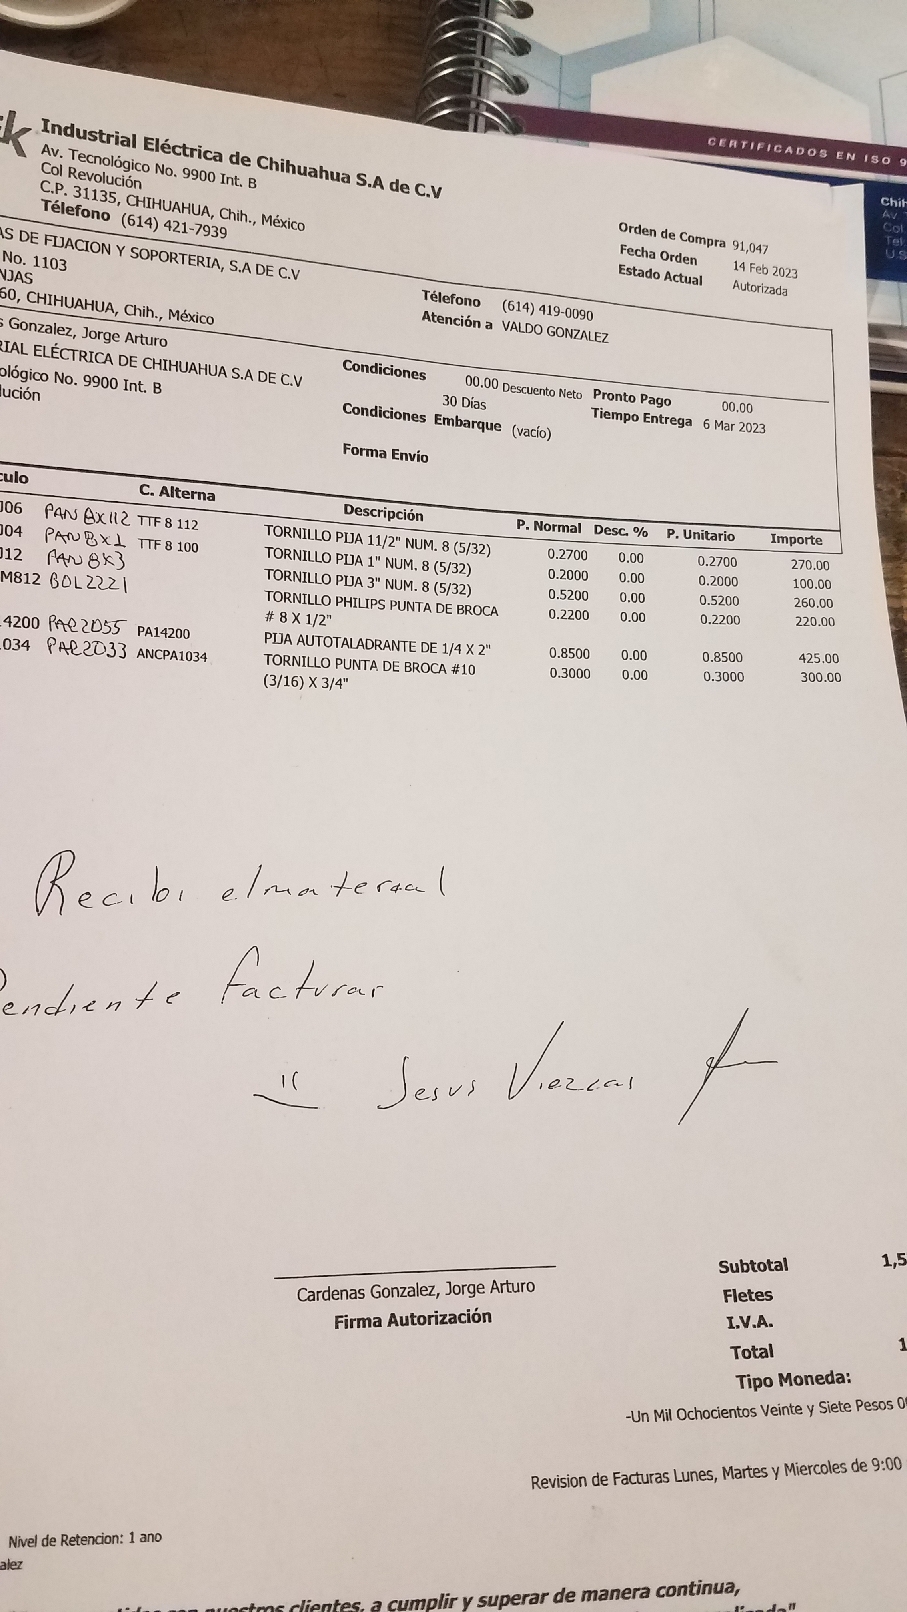 CERTIFICADOS EN ISO 9
Chih
Av.
Col
Tel
U.S
k Industrial Eléctrica de Chihuahua S.A de C.V
Av. Tecnológico No. 9900 Int. B
Col Revolución
C.P. 31135, CHIHUAHUA, Chih., México
Télefono (614) 421-7939
Orden de Compra 91,047
Fecha Orden 14 Feb 2023
Estado Actual Autorizada
AS DE FIJACION Y SOPORTERIA, S.A DE C.V
No. 1103
NJAS
60, CHIHUAHUA, Chih., México
Télefono (614) 419-0090
Atención a VALDO GONZALEZ
s Gonzalez, Jorge Arturo
RIAL ELÉCTRICA DE CHIHUAHUA S.A DE C.V
ológico No. 9900 Int. B
lución
Condiciones 00.00 Descuento Neto Pronto Pago 00.00
30 Días Tiempo Entrega 6 Mar 2023
Condiciones Embarque (vacío)
Forma Envío
culo C. Alterna Descripción P. Normal Desc. % P. Unitario Importe
J06 PAN 8X112 TTF 8 112 TORNILLO PIJA 11/2" NUM. 8 (5/32) 0.2700 0.00 0.2700 270.00
J04 PAN 8X1 TTF 8 100 TORNILLO PIJA 1" NUM. 8 (5/32) 0.2000 0.00 0.2000 100.00
J12 PAN 8X3 TORNILLO PIJA 3" NUM. 8 (5/32) 0.5200 0.00 0.5200 260.00
M812 BOL2221 TORNILLO PHILIPS PUNTA DE BROCA 0.2200 0.00 0.2200 220.00
# 8 X 1/2"
14200 PAR2D55 PA14200 PIJA AUTOTALADRANTE DE 1/4 X 2" 0.8500 0.00 0.8500 425.00
1034 PAR2D33 ANCPA1034 TORNILLO PUNTA DE BROCA #10 0.3000 0.00 0.3000 300.00
(3/16) X 3/4"
Recibi el material
Pendiente facturar
Jesus Viezcas
Cardenas Gonzalez, Jorge Arturo
Firma Autorización
Subtotal 1,5
Fletes
I.V.A.
Total 1
Tipo Moneda:
-Un Mil Ochocientos Veinte y Siete Pesos 0
Revision de Facturas Lunes, Martes y Miercoles de 9:00
Nivel de Retencion: 1 ano
alez
nuestros clientes, a cumplir y superar de manera continua,